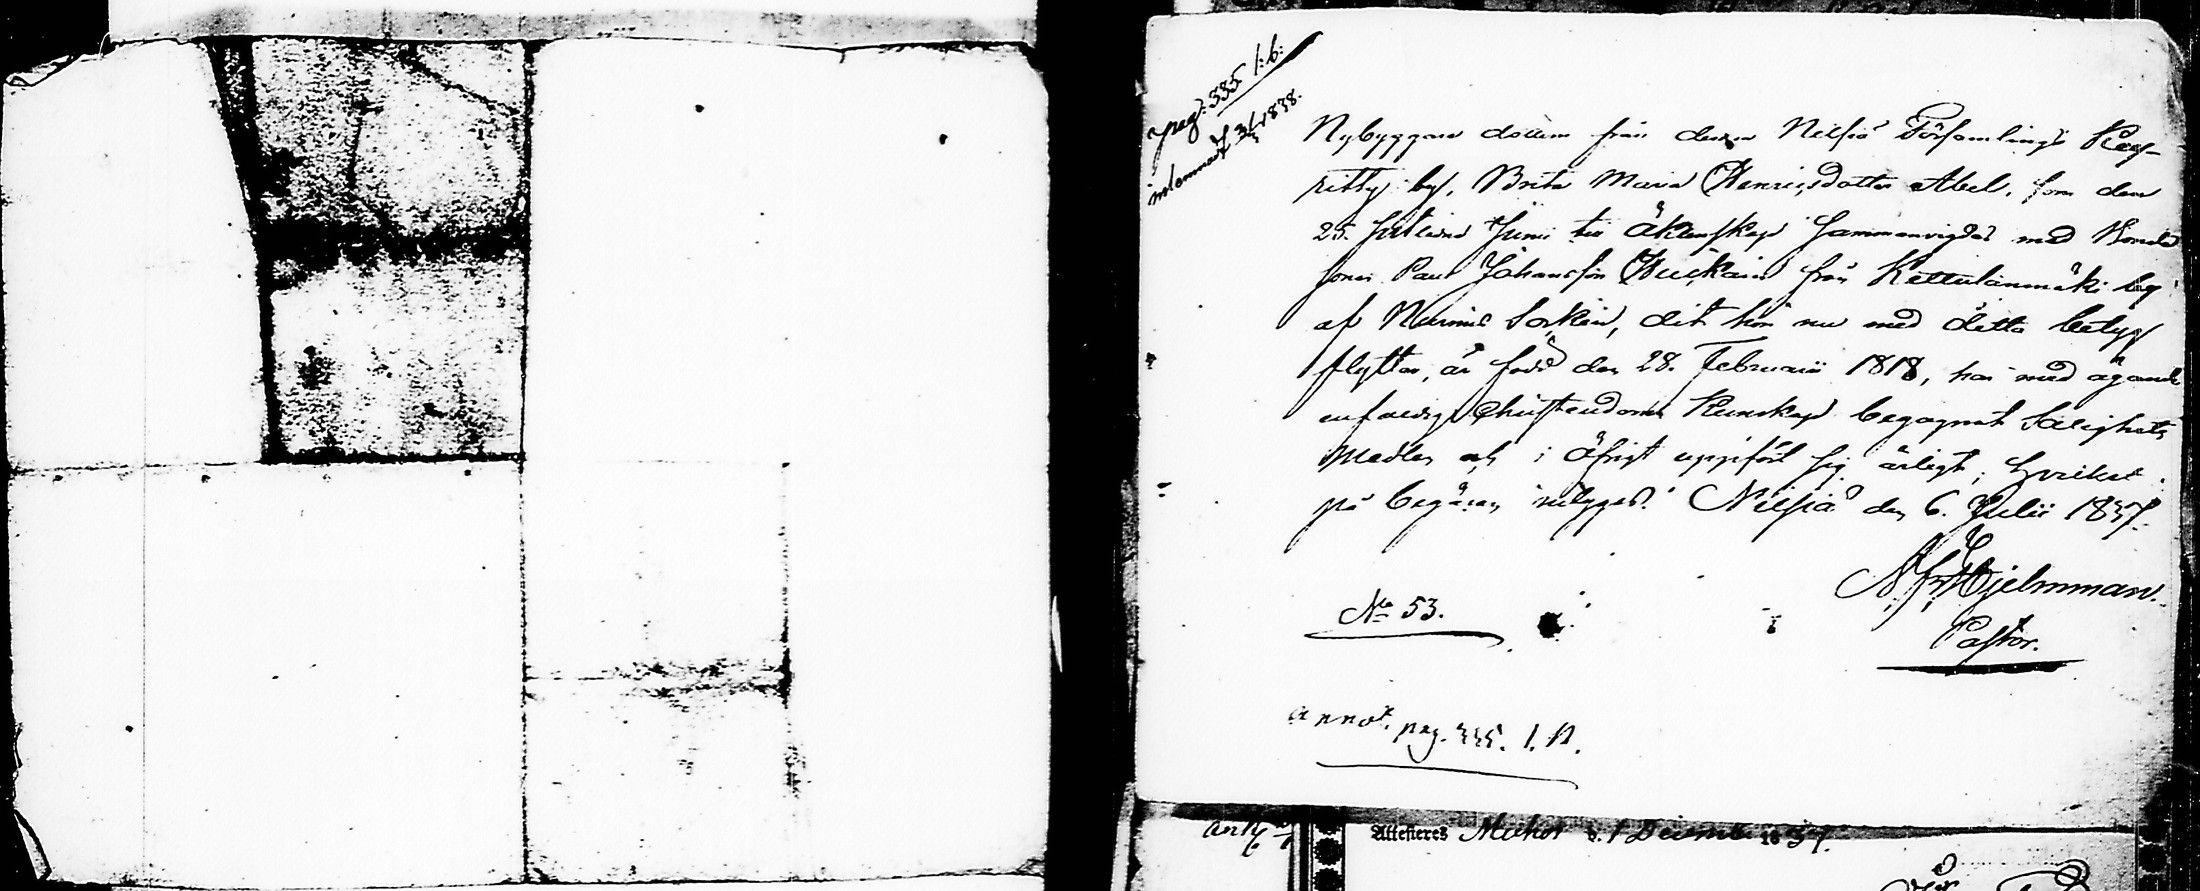 pag: 335. 1:b:
inlemnadt 3/1 1838.
Nybyggare dottern från denna Nilsiä Församlings Kej-
ritty by, Brita Maria Henricsdotter Abel, som den
25. sistledne Junii till äktenskap sammanvigdes med Bonde
sonen Paul Johansson Huckain från Kettulanmäki by
af Nurmis Sockn, dit hon nu med detta betyg
flyttar, är född den 28. Februarii 1818, har med ägande
enfaldig Christendoms Kunskap begagnat Salighets
Medlen och i öfrigt uppfört sig ärligt; hvilket
på begäran intygas. Nilsiä den 6. Julii 1837.
Hjelmman.
Pastor.
No 53.
annot. pag. 335. 1. B.
Attesteras d. 1 Decemb 1837.